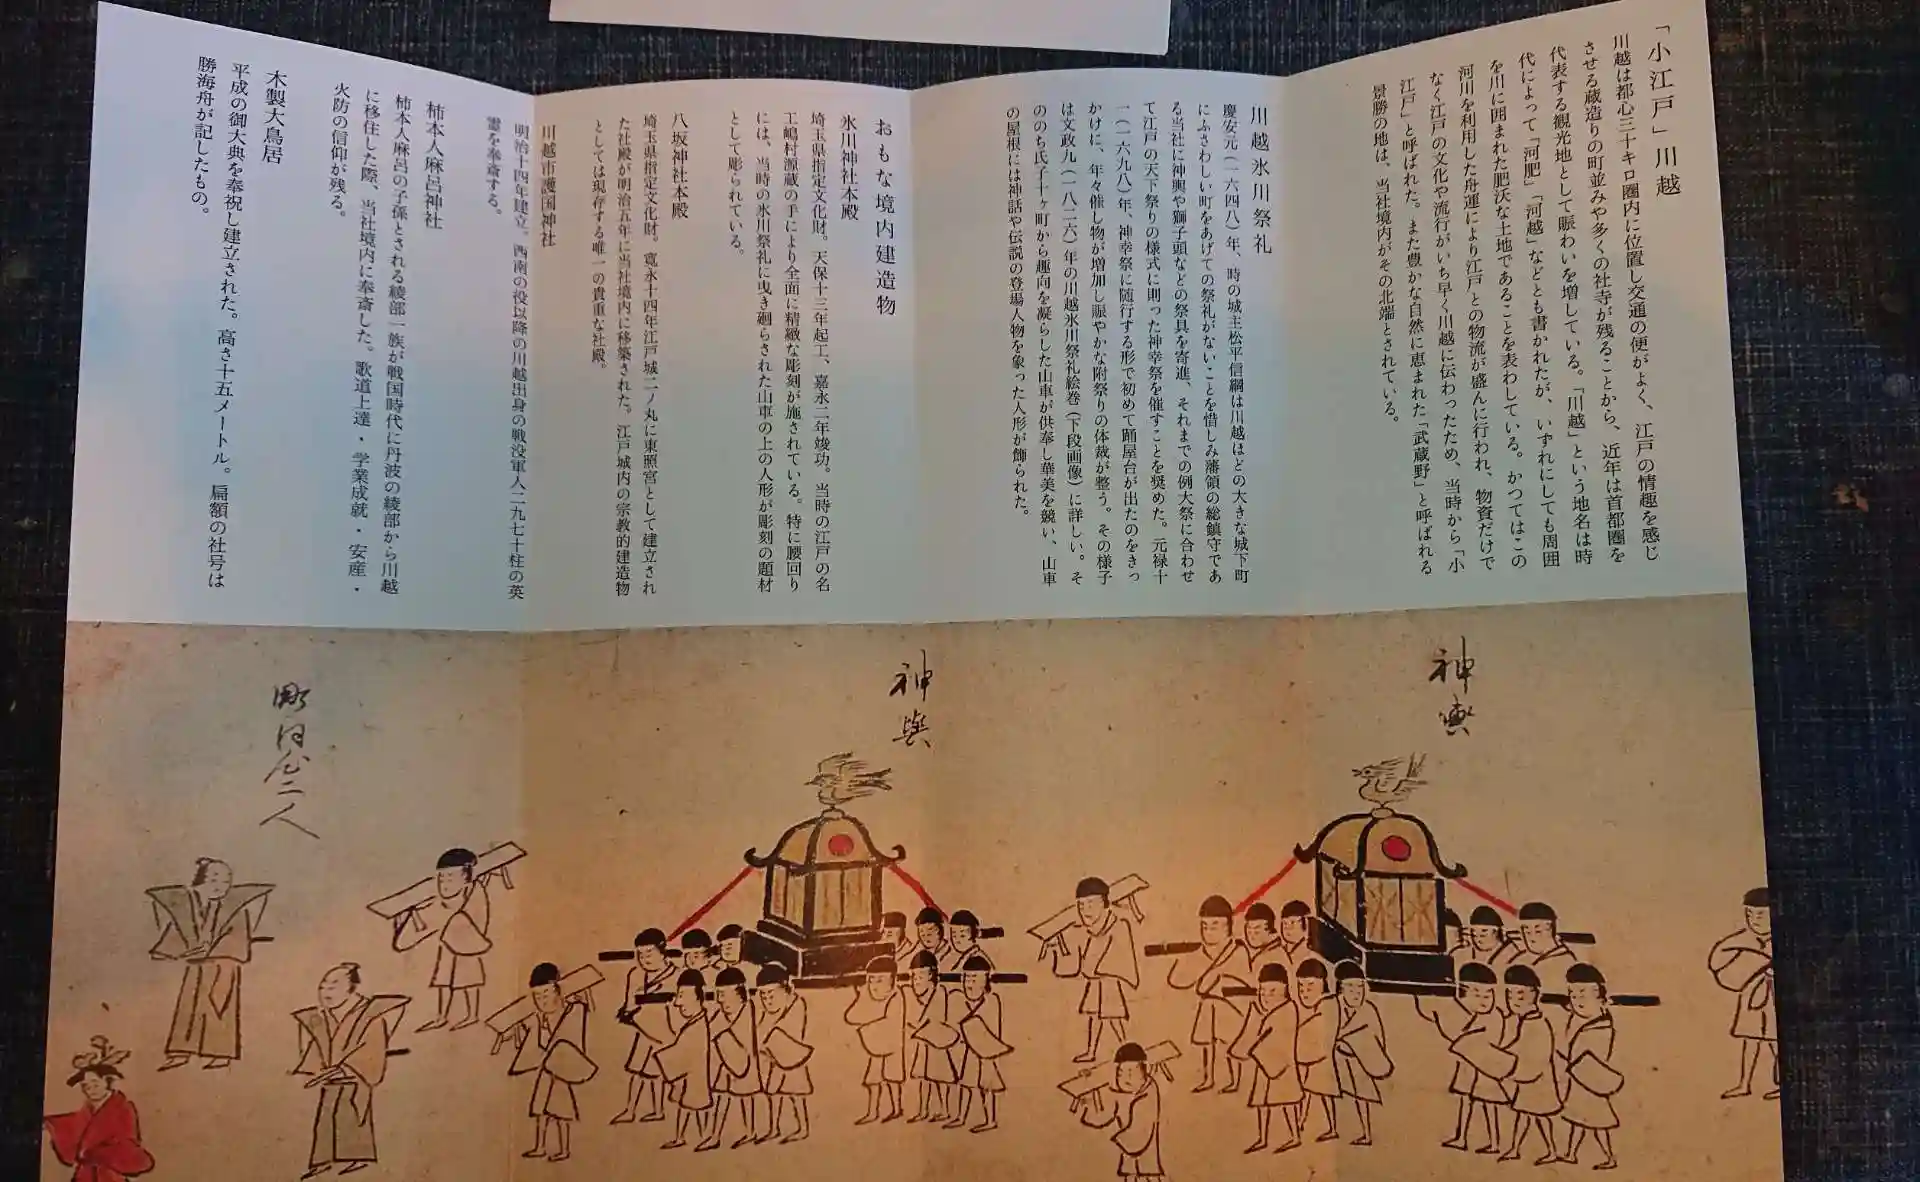 「小江戸」川越
川越は都心三十キロ圏内に位置し交通の便がよく、江戸の情趣を感じ
させる蔵造りの町並みや多くの社寺が残ることから、近年は首都圏を
代表する観光地として賑わいを増している。「川越」という地名は時
代によって「河肥」「河越」などとも書かれたが、いずれにしても周囲
を川に囲まれた肥沃な土地であることを表わしている。かつてはこの
河川を利用した舟運により江戸との物流が盛んに行われ、物資だけで
なく江戸の文化や流行がいち早く川越に伝わったため、当時から「小
江戸」と呼ばれた。また豊かな自然に恵まれた「武蔵野」と呼ばれる
景勝の地は、当社境内がその北端とされている。
川越氷川祭礼
慶安元（一六四八）年、時の城主松平信綱は川越ほどの大きな城下町
にふさわしい町をあげての祭礼がないことを惜しみ藩領の総鎮守であ
る当社に神輿や獅子頭などの祭具を寄進、それまでの例大祭に合わせ
て江戸の天下祭りの様式に則った神幸祭を催すことを奨めた。元禄十
一（一六九八）年、神幸祭に随行する形で初めて踊屋台が出たのをきっ
かけに、年々催し物が増加し賑やかな附祭りの体裁が整う。その様子
は文政九（一八二六）年の川越氷川祭礼絵巻（下段画像）に詳しい。そ
ののち氏子十ヶ町から趣向を凝らした山車が供奉し華美を競い、山車
の屋根には神話や伝説の登場人物を象った人形が飾られた。
おもな境内建造物
氷川神社本殿
埼玉県指定文化財。天保十三年起工、嘉永二年竣功。当時の江戸の名
工嶋村源蔵の手により全面に精緻な彫刻が施されている。特に腰回り
には、当時の氷川祭礼に曳き廻らされた山車の上の人形が彫刻の題材
として彫られている。
八坂神社本殿
埼玉県指定文化財。寛永十四年江戸城二ノ丸に東照宮として建立され
た社殿が明治五年に当社境内に移築された。江戸城内の宗教的建造物
としては現存する唯一の貴重な社殿。
川越市護国神社
明治十四年建立。西南の役以降の川越出身の戦没軍人二九七十柱の英
霊を奉斎する。
柿本人麻呂神社
柿本人麻呂の子孫とされる綾部一族が戦国時代に丹波の綾部から川越
に移住した際、当社境内に奉斎した。歌道上達・学業成就・安産・
火防の信仰が残る。
木製大鳥居
平成の御大典を奉祝し建立された。高さ十五メートル。扁額の社号は
勝海舟が記したもの。
神輿
神輿